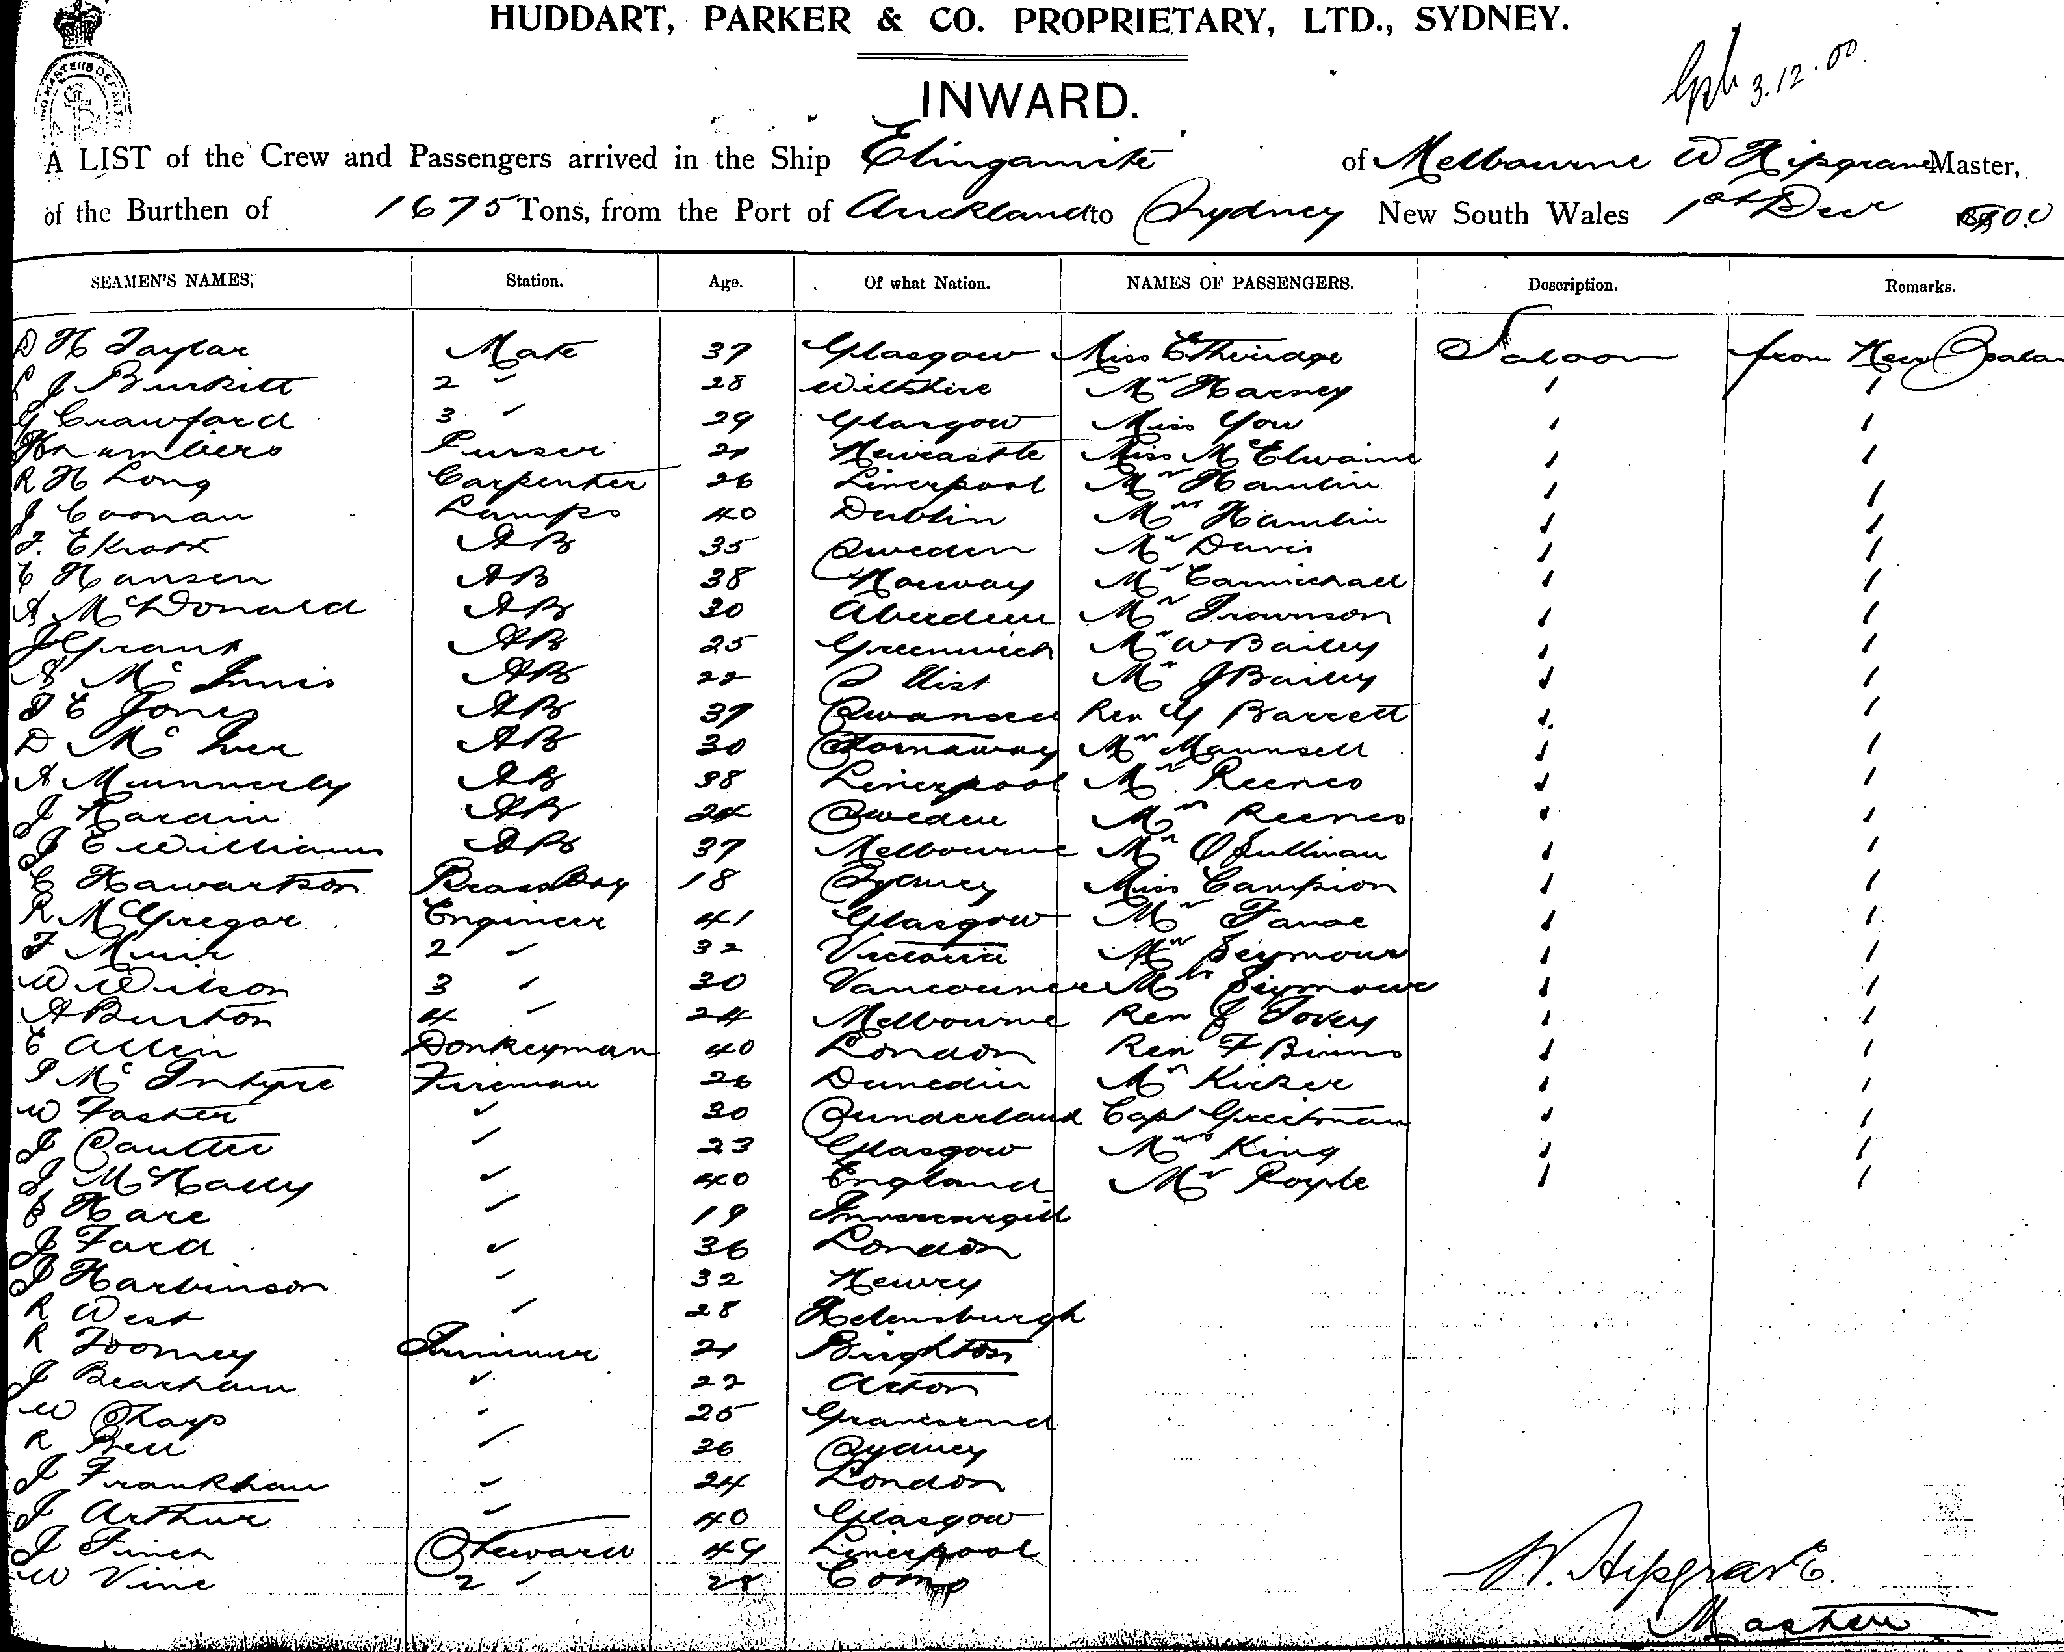 HUDDART, PARKER & CO. PROPRIETARY, LTD., SYDNEY.
3.12.00
INWARD.
A LIST of the Crew and Passengers arrived in the Ship Elingamite of Melbourne W Hipgrave Master,
of the Burthen of 1675 Tons, from the Port of Auckland to Sydney New South Wales 1st Decr 1900
SEAMEN'S NAMES, Station. Age. Of what Nation. NAMES OF PASSENGERS. Description. Remarks.
D H Taylor Mate 37 Glasgow Miss Etheridge Saloon from New
J Burkitt 2 " 28 Wiltshire Mr Harney " "
G Crawford 3 " 29 Glasgow Miss You " "
Purser 21 Newcastle Miss McElwaine " "
R H Long Carpenter 26 Liverpool Mr Hamlin " "
J Coonan Lamps 40 Dublin Mrs Hamlin " "
AB 35 Sweden Mr Davis " "
C Hansen AB 38 Norway Mr Carmichael " "
A McDonald AB 30 Aberdeen Mr Trownson " "
J Grant AB 25 Greenwich Mr W Bailey " "
McInnis AB 22 S Uist Mr J Bailey " "
T E Jones AB 37 Swansea Rev G Barrett " "
D McIver AB 30 Stornaway Mr Maunsell " "
A Munnerly AB 38 Liverpool Mr Reeves " "
J AB 24 Sweden Mrs Reeves " "
J E Williams AB 37 Melbourne Mr O'Sullivan " "
C Hawartson Brass Boy 18 Sydney Miss Campion " "
R McGregor Engineer 41 Glasgow Mr " "
F Muir 2 " 32 Victoria Mr Seymour " "
W Wilson 3 " 30 Vancouver Mrs Seymour " "
A Burton 4 " 24 Melbourne Rev J Tovey " "
E Allen Donkeyman 40 London Rev F Binns " "
McIntyre Fireman 26 Dunedin Mr Kicker " "
W Foster " 30 Sunderland Capt " "
J Coulter " 23 Glasgow Mrs King " "
J McNally " 40 England Mr Royle " "
Hare " 19 Invercargill
J Ford " 36 London
J Harbinson " 32 Newry
R West " 28 Helensburgh
R Toomey Trimmer 21 Brighton
J Beacham " 22 Acton
W Sharp " 25 Gravesend
R Bell " 36 Sydney
J Frankham " 24 London
J Arthur " 40 Glasgow
J Finch Steward 49 Liverpool
W Vine 2 " 28 Comp
W. Hipgrave.
Master